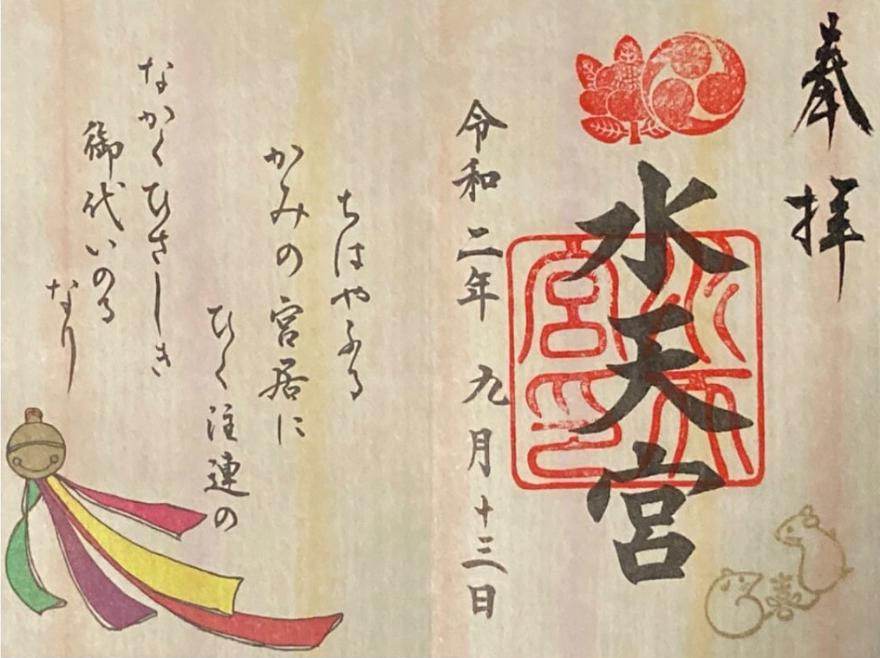 奉拝
水天宮
令和二年 九月十三日
ちはやふる
かみの宮居に
ひく注連の
なかくひさしき
御代いのる
なり